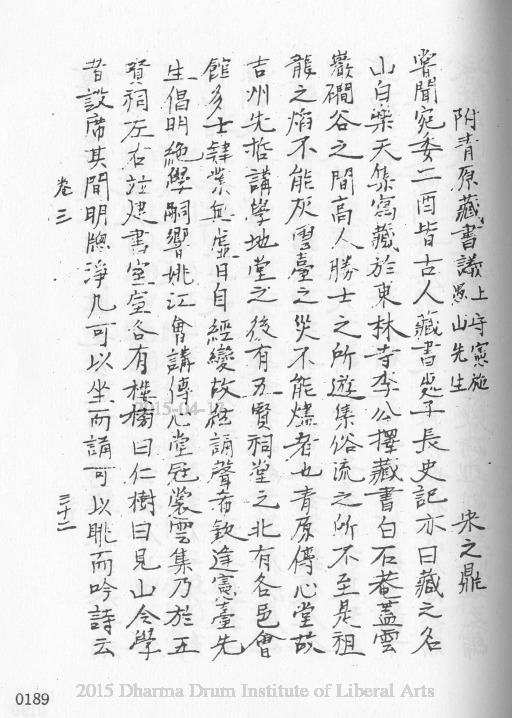 附青原藏書議 上守憲施愚山先生 宋之鼎
嘗聞宛委二酉皆古人藏書處子長史記亦曰藏之名
山白樂天集寫藏於東林寺李公擇藏書白石菴蓋雲
巖磵谷之間高人勝士之所遊集俗流之所不至是祖
龍之焰不能灰雲臺之災不能燼者也青原傳心堂故
吉州先哲講學地堂之後有五賢祠堂之北有各邑會
館多士肄業無虛日自經變故絃誦聲希欽逢憲臺先
生倡明絶學嗣響姚江會講傳心堂冠裳雲集乃於五
賢祠左右並建書室室各有樓橢曰仁樹曰見山令學
者設席其間明牕淨几可以坐而誦可以眺而吟詩云
卷三
三十二
2015-04-
0189
2015 Dharma Drum Institute of Liberal Arts